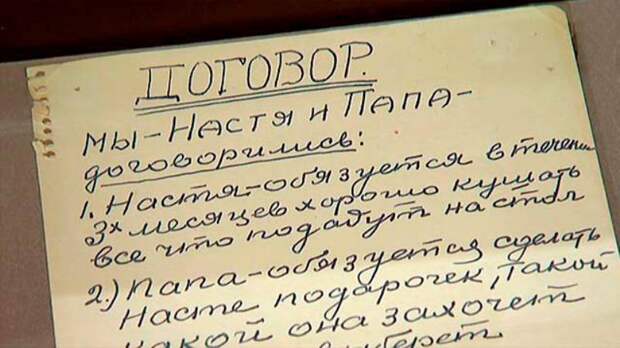 ДОГОВОР.
МЫ-НАСТЯ И ПАПА-
договорились:
1. Настя-обязуется в течении
3х месяцев хорошо кушать
все что подадут на стол
2.) Папа-обязуется сделать
Насте подарочек, такой
какой она захочет